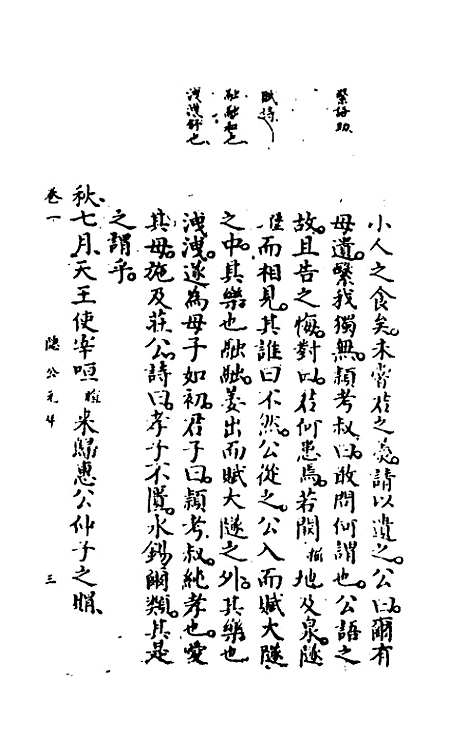 繄語助
賦詩
融融和也
洩洩舒也
小人之食矣。未嘗君之羹。請以遺之。公曰。爾有
母遺。繄我獨無。潁考叔曰。敢問何謂也。公語之
故。且告之悔。對曰。君何患焉。若闕掘地及泉。隧
隧而相見。其誰曰不然。公從之。公入而賦大隧
之中。其樂也融融。姜出而賦大隧之外。其樂也
洩洩。遂為母子如初。君子曰。潁考叔純孝也。愛
其母。施及莊公。詩曰。孝子不匱。永錫爾類。其是
之謂乎。
秋七月、天王使宰咺來歸惠公仲子之賵、
卷一 隱公元年 三